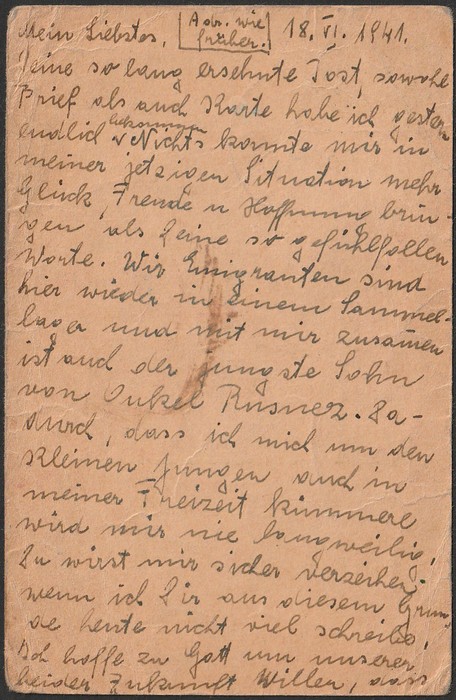 Mein Liebstes,
Adr. wie
früher.
18. VI. 1941.
Deine so lang ersehnte Post, sowohl
Brief als auch Karte habe ich gestern
endlich bekommen
Nichts konnte mir in
meiner jetzigen Situation mehr
Glück, Freude u Hoffnung brin-
gen als Deine so gefühlfollen
Worte. Wir Emigranten sind
hier wieder in einem Sammel-
lager und mit mir zusamen
ist auch der jüngste Sohn
von Onkel Rusnez. Da-
durch, dass ich mich um den
kleinen Jungen auch in
meiner Freizeit kümmere
wird mir nie langweilig.
Du wirst mir sicher verzeihen,
wenn ich Dir aus diesem Grun-
de heute nicht viel schreibe,
Ich hoffe zu Gott um unserer
beider Zukunft Willen, dass